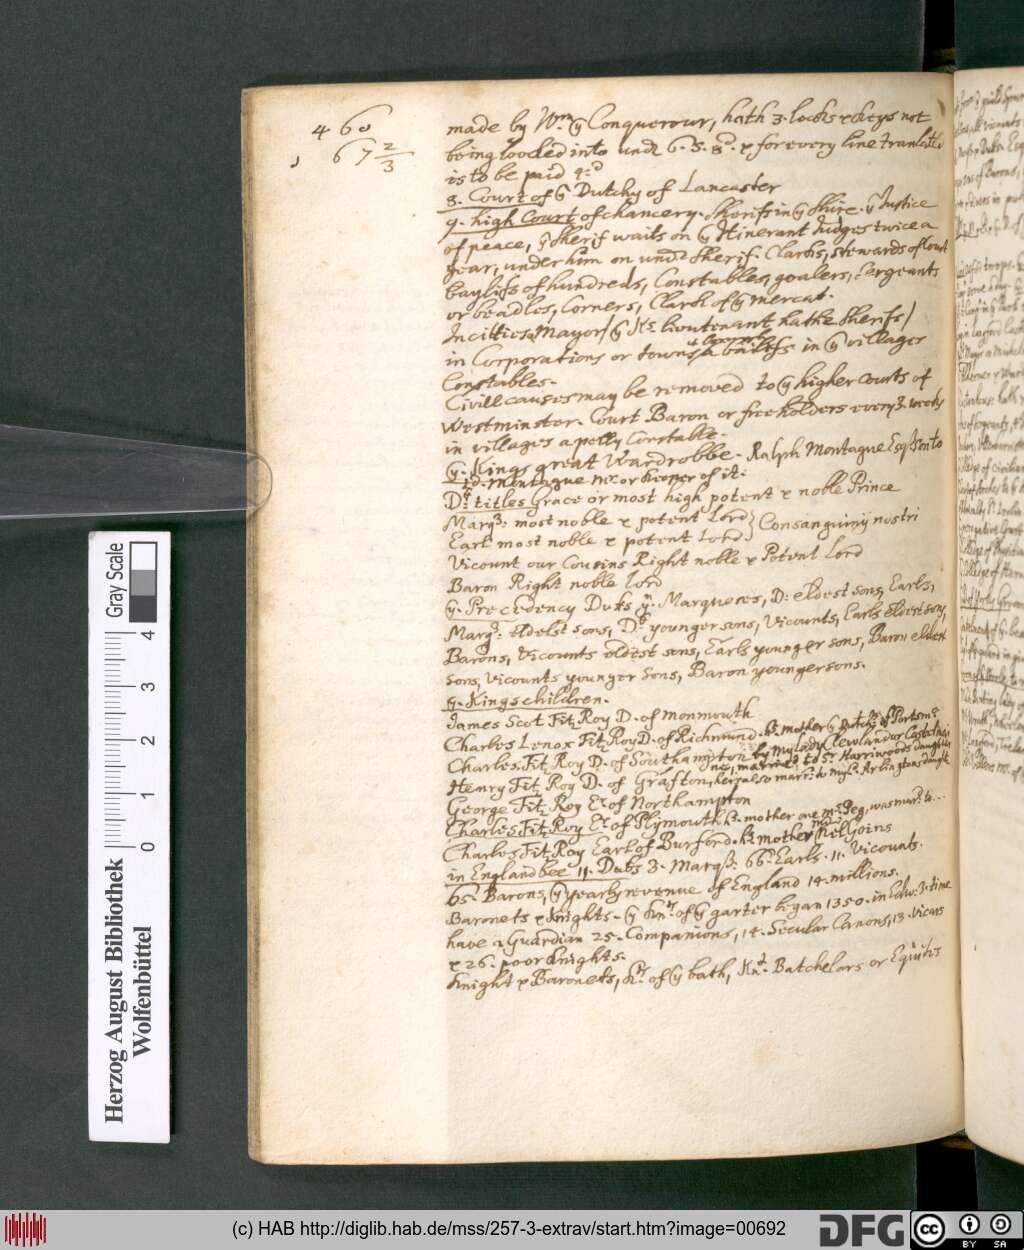 4 60
1 67 2/3
made by Wm ÿ Conquerour, hath 3. locks & keys not
being looked into undr 6. S. 8d. & for every line translated
is to be paid 4d
8. Court of ÿ Dutchy of Lancaster
9. high Court of chancery. Sherifs in ÿ shire. ÿ Justice
of peace, ÿ Sherif waits on ÿ Itinerant Judges twice a
year, under him on undr Sherif. Clarks, stewards of Court
baylifs of hundreds, Constables, goalers, Sergeants
or beadles, Corners, Clark of ÿ mercat.
In citties a Mayor (ÿ Ks lieutenant hathe Sherifs)
in Corporations or towns a bailifs in ÿ villages
Constables.
Civill causes may be removed to ÿ higher courts of
Westminster. Court Baron or freeholders every 3. weeks
in villages a petty Constable.
ÿ. Kings great Wardrobbe. Ralph Montague Esq son to
Ld. Montague Mr. or keeper of it.
Ds titles Grace or most high potent & noble Prince
Marqs: most noble & potent Lord } Consanguinij nostri
Earl most noble & potent Lord }
Vicount our Cousins Right noble & Potent Lord
Baron Right noble Lord
ÿ. Precedency Duks ÿ. Marqueses, D: eldest sons, Earls,
Marqs: eldelst sons, Ds younger sons, Vicounts, Earls eldest sons,
Barons, Vicounts eldest sons, Earls younger sons, Baron eldest
sons, Vicounts younger Sons, Baron younger sons.
ÿ. Kings children.
James Scot Fitz Roy D. of Monmouth
Charles Lenox Fitz Roy D. of Richmund. hs mother ÿ Dutchs of Portsmo
Charles Fitz Roy D. of Southampton by My Lady Clewland or Castelmain
he, married to Sr. Harriwoods daughter
Henry Fitz Roy D. of Grafton, he is also marr: to my Ld. Arlingtons daughter
George Fitz Roy E. of Northampton
Charles Fitz Roy E. of Plymouth hs. mother one Ms Peg, was marr. to...
Charles Fitz Roy Earl of Burford. hs mother Mdm Nel Goins
in England bee 11. Duks 3. Marqs. 66. Earls. 11. Vicounts.
65. Barons, ÿ yearly revenue of England 14. millions.
Baronets & Knights. ÿ Knt of ÿ garter began 1350. in Edw. 3. time
have a Guardian 25. Companions, 14. Secular Canons, 13. Vicars
& 26. poor Knights.
Knight & Baronets, Kt of ÿ bath, Knt. Batchelars or Equites
Gray Scale
4 3 2 1 0
Herzog August Bibliothek
Wolfenbüttel
(c) HAB http://diglib.hab.de/mss/257-3-extrav/start.htm?image=00692
DFG
cc BY SA